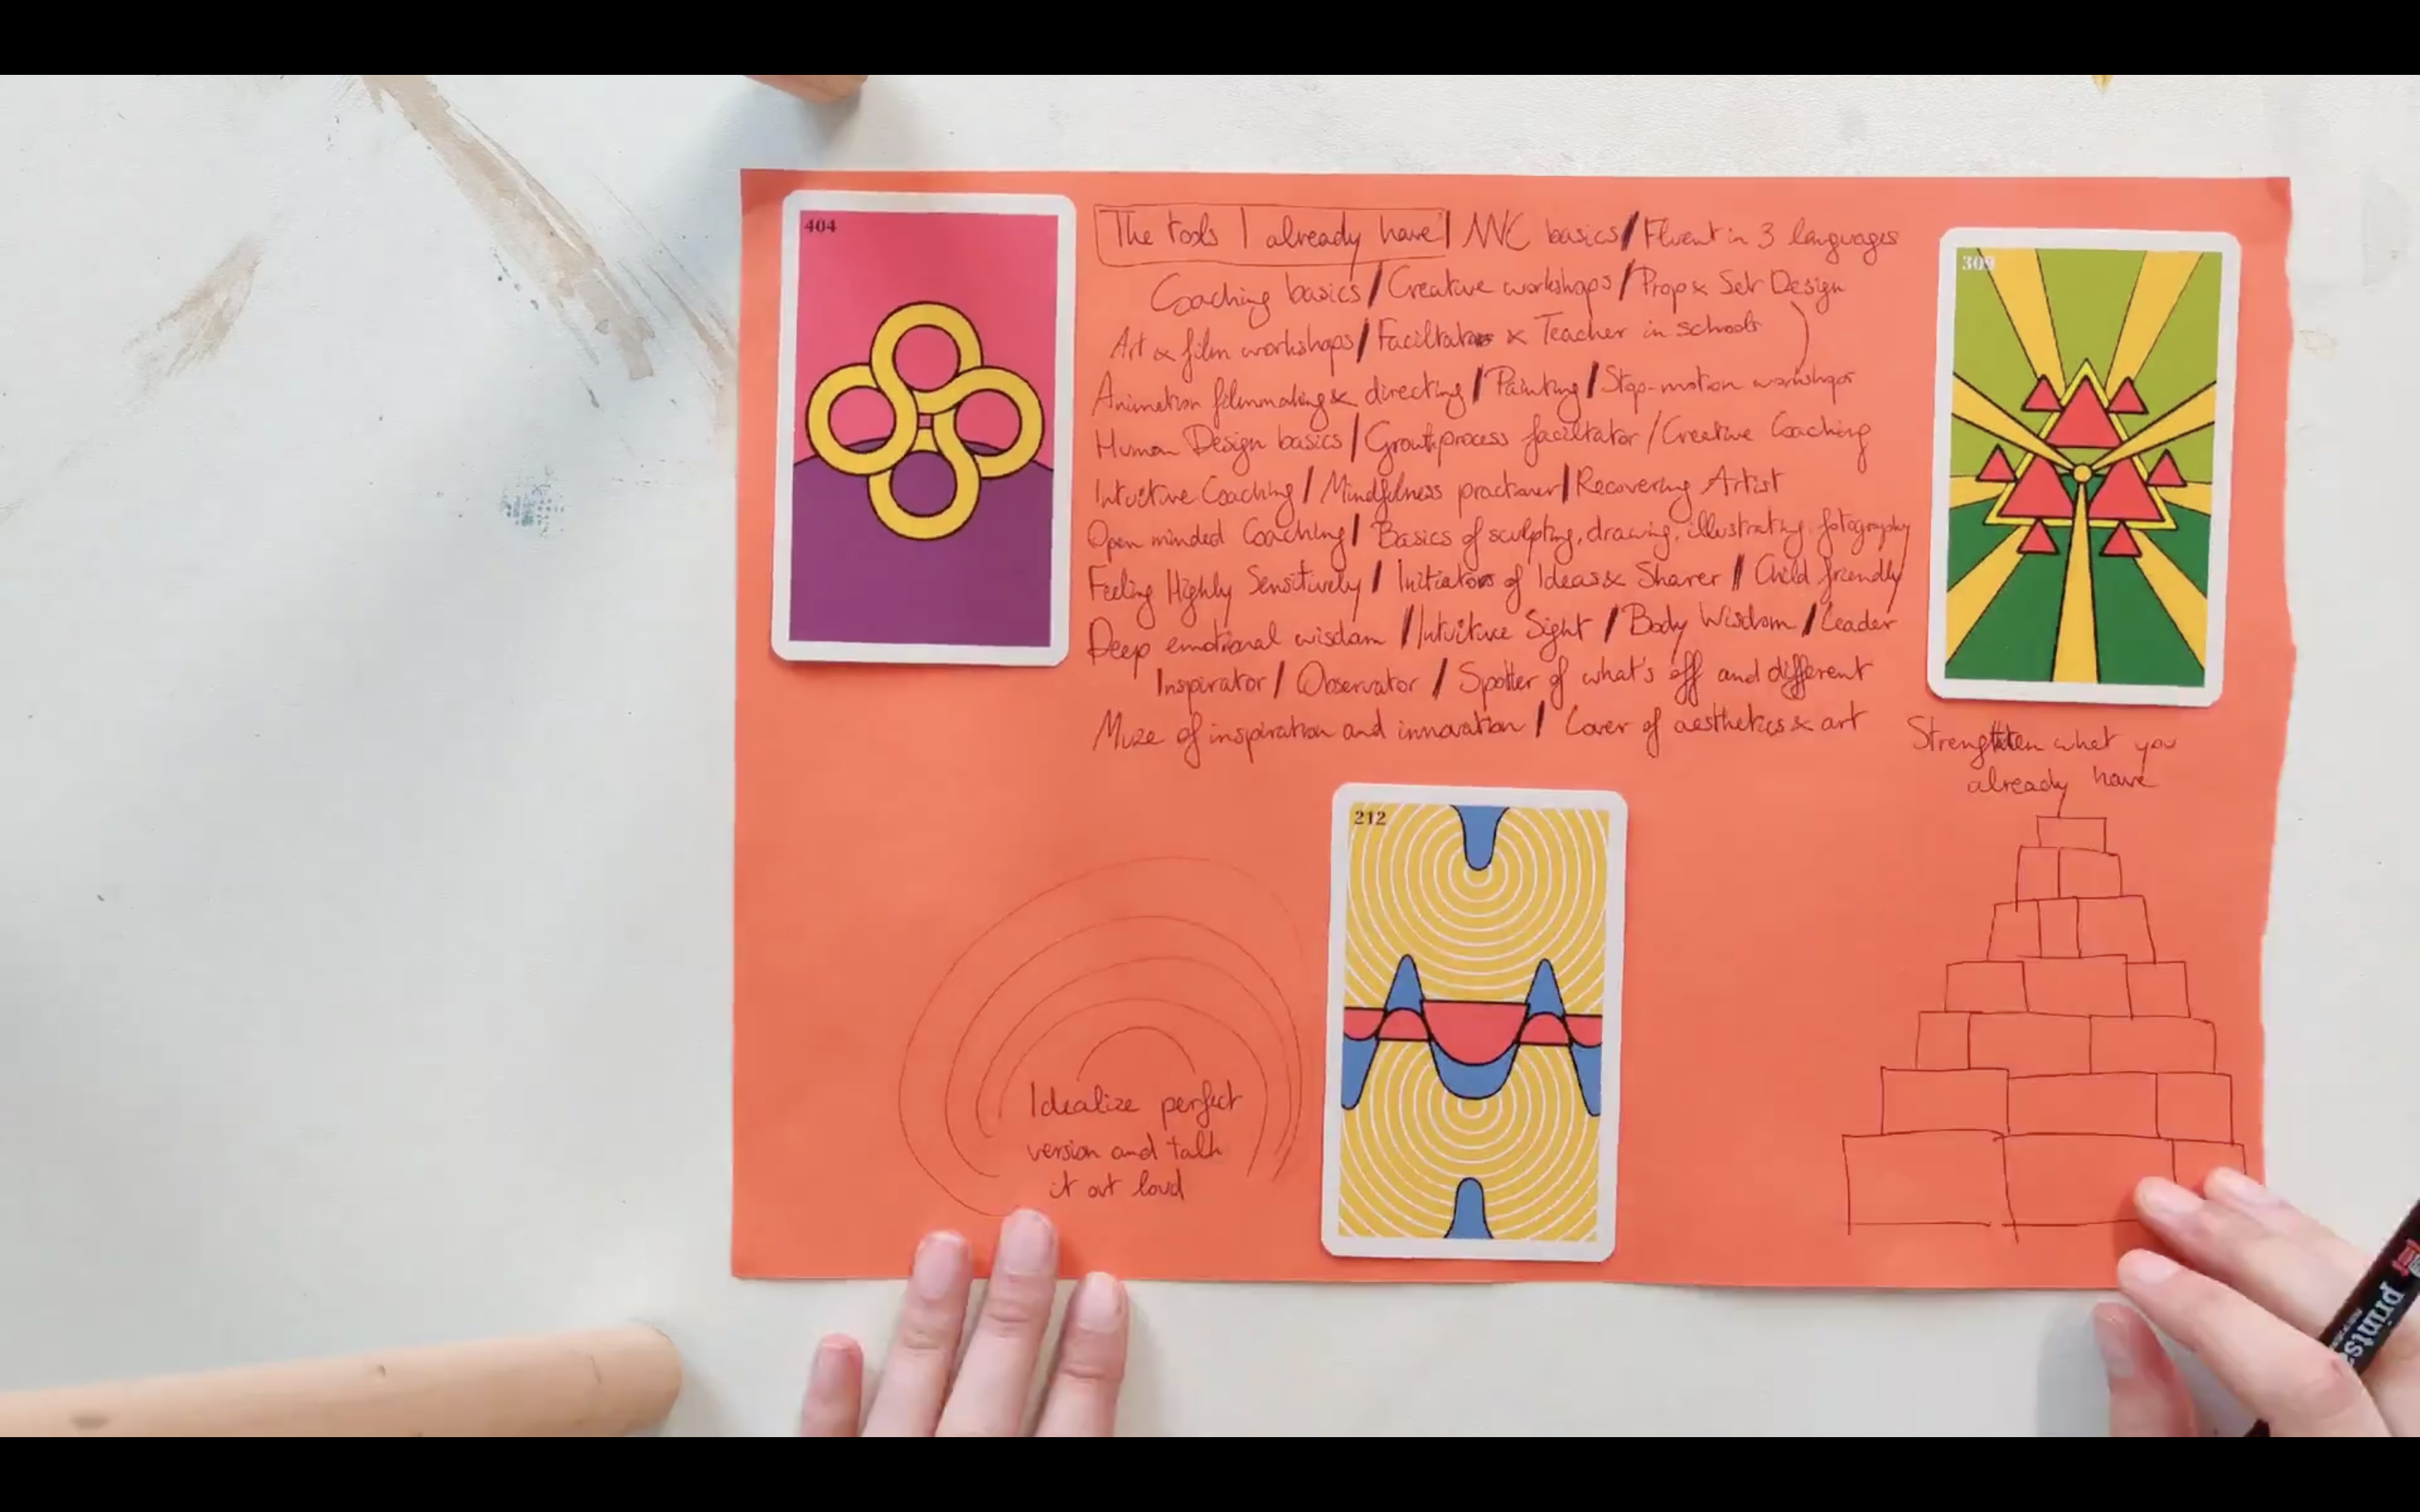 404
The tools I already have | NVC basics / Fluent in 3 languages
309
Coaching basics / Creative workshops / Prop & Set Design
Art & film workshops / Facilitator & Teacher in schools
Animation filmmaking & directing / Painting / Stop-motion workshops
Human Design basics / Growthprocess facilitator / Creative Coaching
Intuitive Coaching / Mindfulness practioner / Recovering Artist
Open minded Coaching / Basics of sculpting, drawing, illustrating, fotography
Feeling Highly Sensitively / Initiator of Ideas & Sharer // Child friendly
Deep emotional wisdom / Intuitive Sight / Body Wisdom / Leader
Inspirator / Observator / Spotter of what's off and different
Muze of inspiration and innovation / Lover of aesthetics & art
Strengthten what you
already have
212
Idealize perfect
version and talk
it out loud